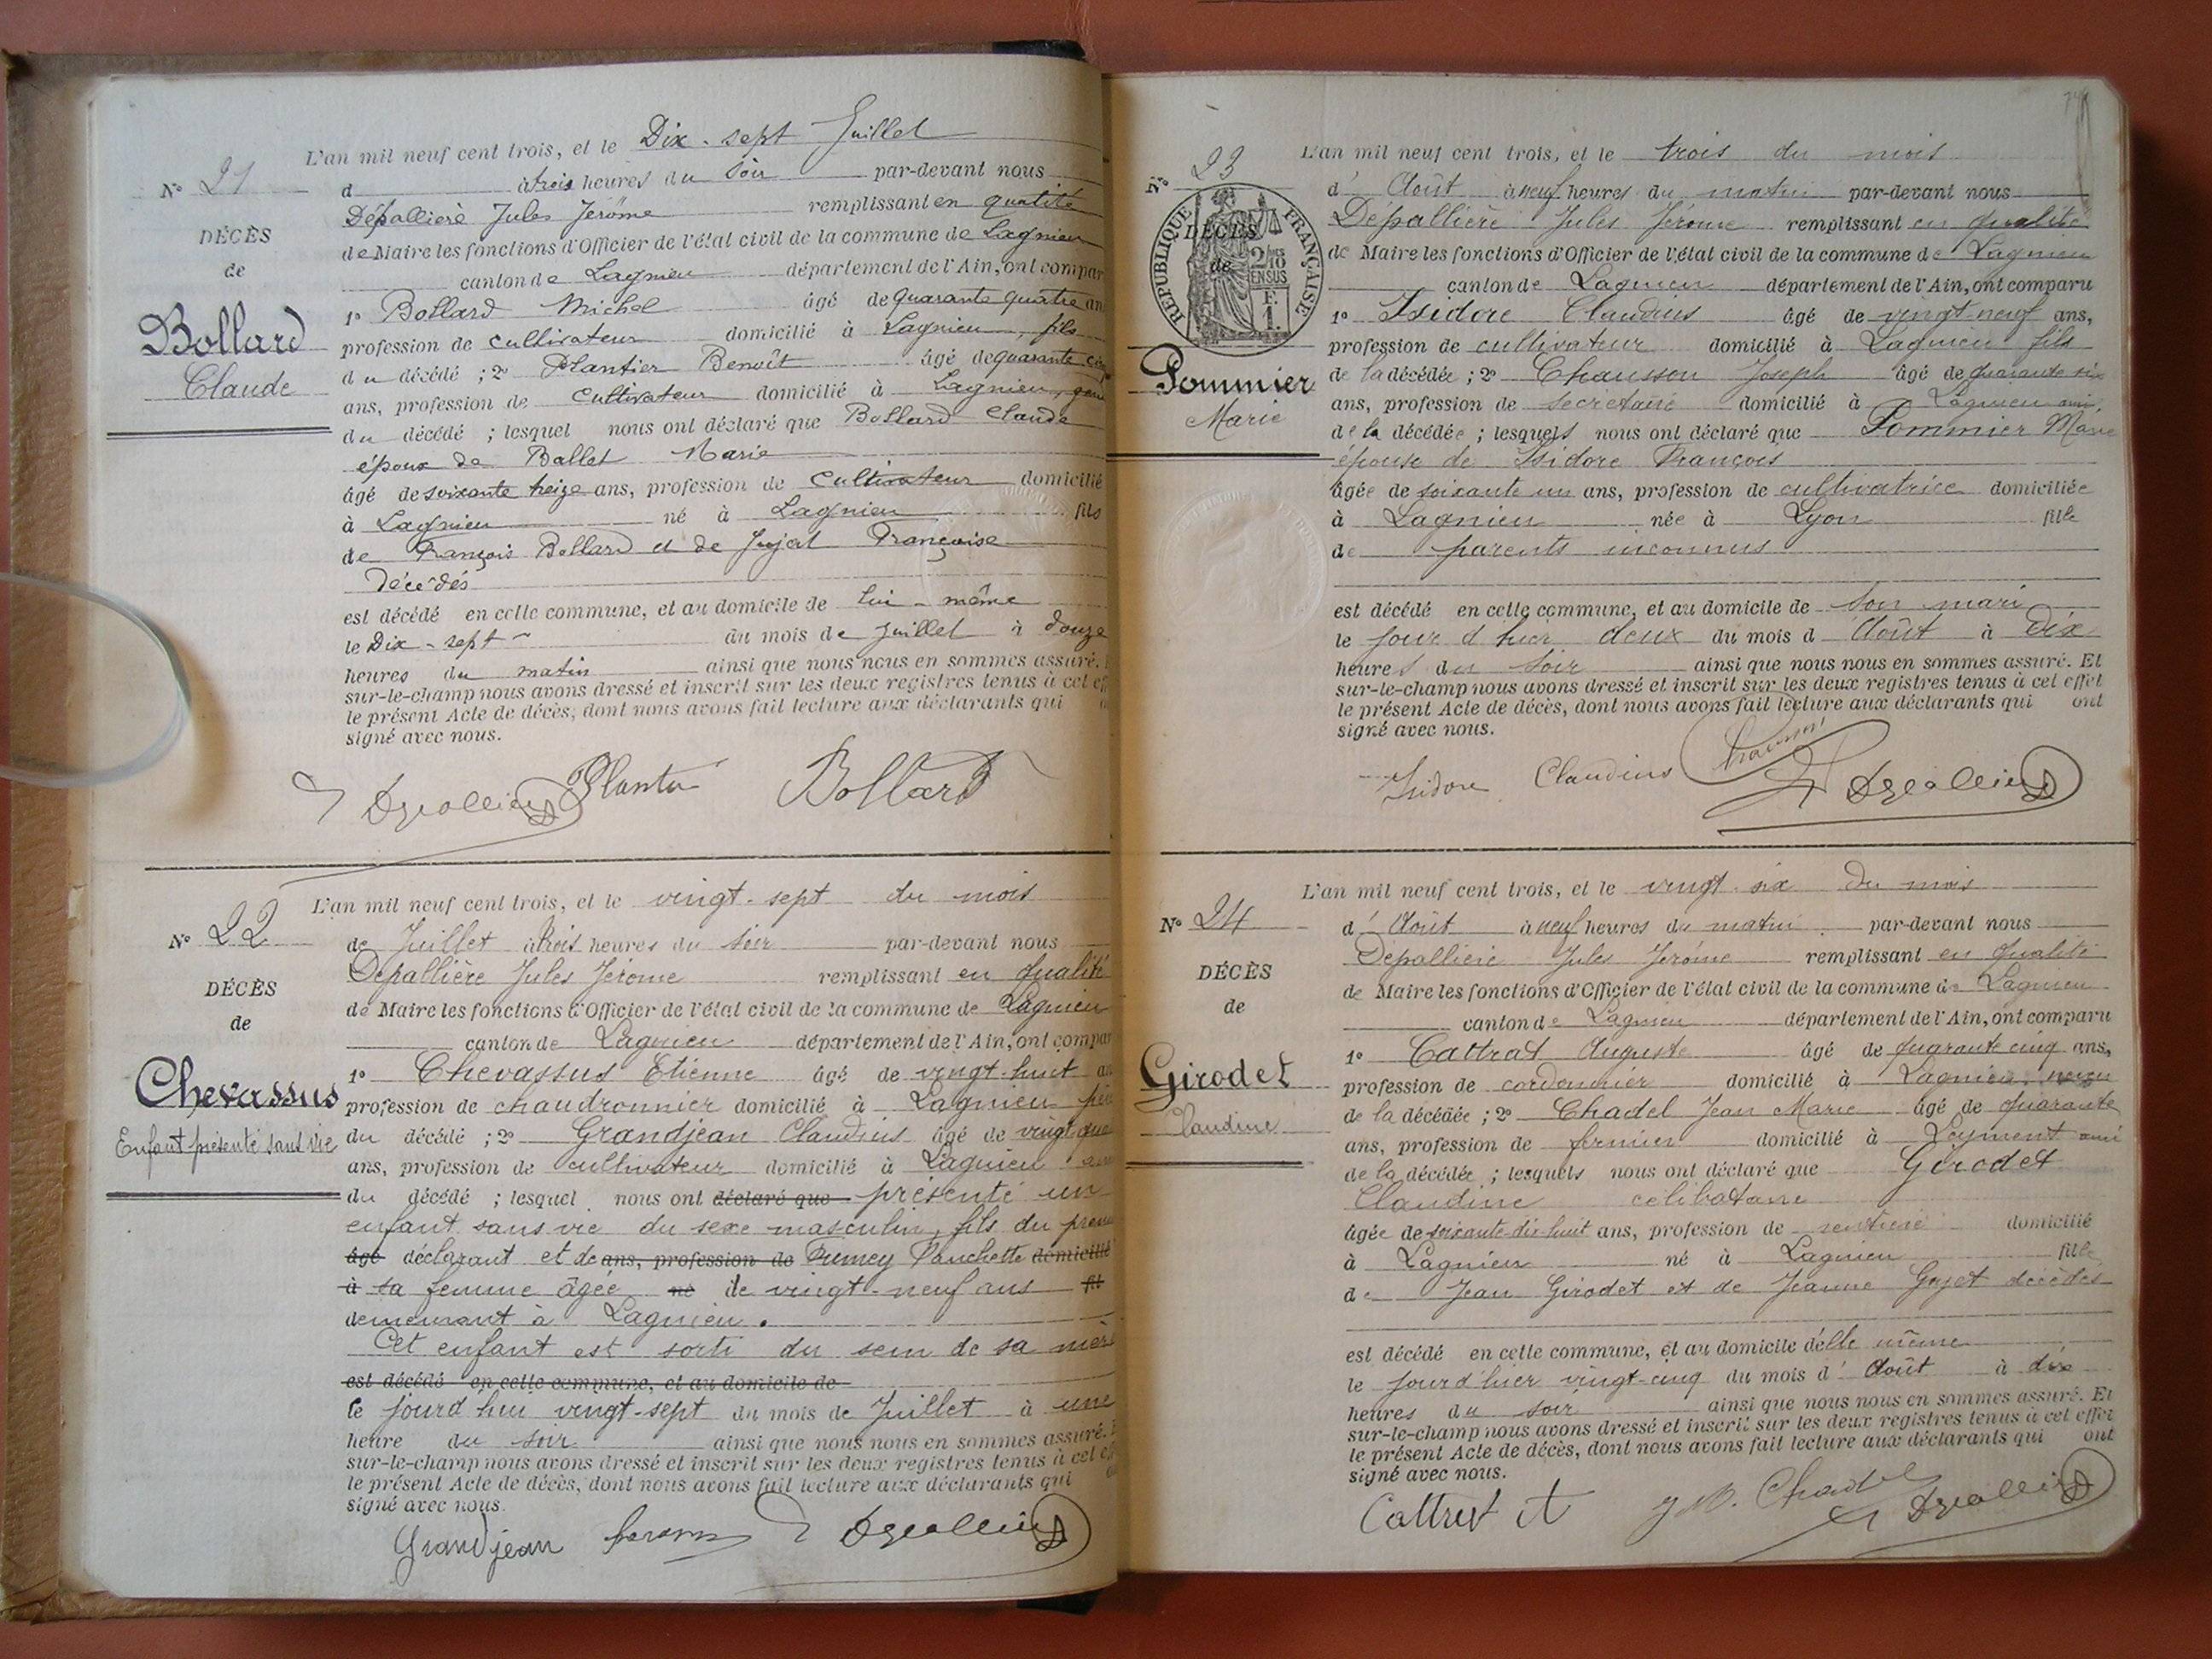 N° 21
DÉCÈS
de
Bollard
Claude
L'an mil neuf cent trois, et le Dix-sept Juillet
d à trois heures du soir par-devant nous
Dépallière Jules Jérôme remplissant en qualité
de Maire les fonctions d'Officier de l'état civil de la commune de Lagnieu
canton de Lagnieu département de l'Ain, ont compar
1° Bollard Michel âgé de quarante quatre an
profession de cultivateur domicilié à Lagnieu, fils
du décédé ; 2° Plantier Benoît âgé de quarante
ans, profession de cultivateur domicilié à Lagnieu,
du décédé ; lesquel nous ont déclaré que Bollard Claude
époux de Ballet Marie
âgé de soixante treize ans, profession de cultivateur domicilié
à Lagnieu né à Lagnieu fils
de François Bollard et de Françoise
décédés
est décédé en cette commune, et au domicile de lui-même
le Dix-sept du mois de Juillet à douze
heures du matin ainsi que nous nous en sommes assuré.
sur-le-champ nous avons dressé et inscrit sur les deux registres tenus à cet eff
le présent Acte de décès, dont nous avons fait lecture aux déclarants qui
signé avec nous.
Bollard
N° 22
DÉCÈS
de
Chevassus
Enfant présenté sans vie
L'an mil neuf cent trois, et le vingt-sept du mois
de Juillet à trois heures du soir par-devant nous
Dépallière Jules Jérome remplissant en qualité
de Maire les fonctions d'Officier de l'état civil de la commune de Lagnieu
canton de Lagnieu département de l'Ain, ont compar
1° Chevassus Etienne âgé de vingt-huit an
profession de chaudronnier domicilié à Lagnieu père
du décédé ; 2° Grandjean Claudius âgé de vingt
ans, profession de cultivateur domicilié à Lagnieu
du décédé ; lesquel nous ont déclaré que présenté un
enfant sans vie du sexe masculin, fils du prem
âgé déclarant et de ans, profession de Fumey domicilié
à sa femme âgée né de vingt-neuf ans fil
demeurant à Lagnieu.
Cet enfant est sorti du sein de sa mère
est décédé en cette commune, et au domicile de
le jourd'hui vingt-sept du mois de Juillet à une
heure du soir ainsi que nous nous en sommes assuré.
sur-le-champ nous avons dressé et inscrit sur les deux registres tenus à cet eff
le présent Acte de décès, dont nous avons fait lecture aux déclarants qui
signé avec nous.
Grandjean
N° 23
RÉPUBLIQUE FRANÇAISE
2/10 EN SUS
F. 1.
DÉCÈS
de
Pommier
Marie
L'an mil neuf cent trois, et le trois du mois
d'Août à neuf heures du matin par-devant nous
Dépallière Jules Jérome remplissant en qualité
de Maire les fonctions d'Officier de l'état civil de la commune de Lagnieu
canton de Lagnieu département de l'Ain, ont comparu
1° Isidore Claudius âgé de vingt-neuf ans,
profession de cultivateur domicilié à Lagnieu fils
de la décédée ; 2° Chausson Joseph âgé de quarante six
ans, profession de secrétaire domicilié à Lagnieu ami
de la décédée ; lesquels nous ont déclaré que Pommier Marie
épouse de Isidore François
âgée de soixante un ans, profession de cultivatrice domiciliée
à Lagnieu née à Lyon fille
de parents inconnus
est décédé en cette commune, et au domicile de son mari
le jour d'hier deux du mois d'Août à Dix
heures du soir ainsi que nous nous en sommes assuré. Et
sur-le-champ nous avons dressé et inscrit sur les deux registres tenus à cet effet
le présent Acte de décès, dont nous avons fait lecture aux déclarants qui ont
signé avec nous.
Isidore Claudius
N° 24
DÉCÈS
de
Girodet
Claudine
L'an mil neuf cent trois, et le vingt-six du mois
d'Août à neuf heures du matin par-devant nous
Dépallière Jules Jérôme remplissant en qualité
de Maire les fonctions d'Officier de l'état civil de la commune de Lagnieu
canton de Lagnieu département de l'Ain, ont comparu
1° Cattrat Auguste âgé de quarante cinq ans,
profession de cordonnier domicilié à Lagnieu neveu
de la décédée ; 2° Chadel Jean Marie âgé de quarante
ans, profession de fermier domicilié à Leyment ami
de la décédée ; lesquels nous ont déclaré que Girodet
Claudine célibataire
âgée de soixante-dix-huit ans, profession de rentière domicilié
à Lagnieu né à Lagnieu fille
de Jean Girodet et de Jeanne Gojet décédés
est décédé en cette commune, et au domicile d'elle même
le jour d'hier vingt-cinq du mois d'Août à dix
heures du soir ainsi que nous nous en sommes assuré. Et
sur-le-champ nous avons dressé et inscrit sur les deux registres tenus à cet effet
le présent Acte de décès, dont nous avons fait lecture aux déclarants qui ont
signé avec nous.
J M. Chadel